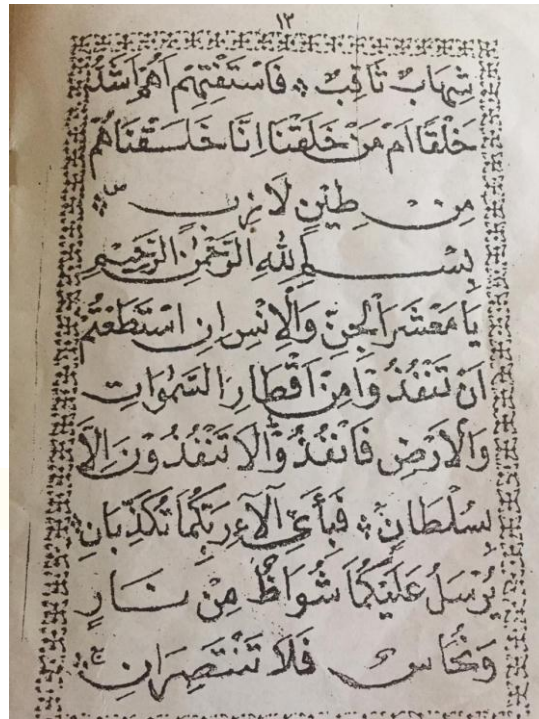 ١٣
شِهَابٌ ثَاقِبٌ ۞ فَاسْتَفْتِهِمْ اَهُمْ اَشَدُّ
خَلْقًا اَمْ مَنْ خَلَقْنَا اِنَّا خَلَقْنَاهُمْ
مِنْ طِيْنٍ لَازِبٍ
بِسْمِ اللهِ الرَّحْمٰنِ الرَّحِيْمِ
يَا مَعْشَرَ الْجِنِّ وَالْاِنْسِ اِنِ اسْتَطَعْتُمْ
اَنْ تَنْفُذُوْا مِنْ اَقْطَارِ السَّمٰوَاتِ
وَالْاَرْضِ فَانْفُذُوْا لَا تَنْفُذُوْنَ اِلَّا
بِسُلْطَانٍ ۞ فَبِأَيِّ آلَاءِ رَبِّكُمَا تُكَذِّبَانِ
يُرْسَلُ عَلَيْكُمَا شُوَاظٌ مِنْ نَارٍ
وَنُحَاسٌ فَلَا تَنْتَصِرَانِ